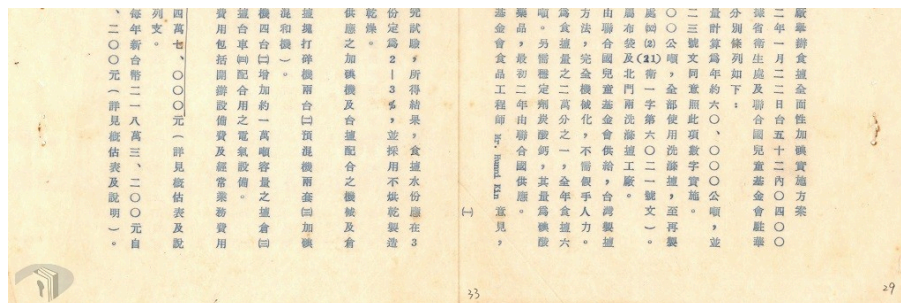 廠舉辦食鹽全面性加碘實施方案
二年一月二二日台五十二內〇四〇〇
據省衛生處及聯合國兒童基金會駐華
分別條列如下：
量計算爲年約六〇、〇〇〇公噸，並
二三號文同意照此項數字實施。
〇〇公噸，全部使用洗滌鹽，至再製
衛一字第六〇二一號文）。
屬布袋及北門兩洗滌鹽工廠。
由聯合國兒童基金會供給，台灣製鹽
方法，完全機械化，不需假手人力。
爲食鹽量之二萬分之一，全年食鹽六
噸。另需穩定劑炭酸鈣，其量爲碘酸
藥品，最初二年由聯合國供應。
基金會食品工程師 Mr. 意見，
㈠
完試驗，所得結果，食鹽水份應在3
份定爲2—3%，並採用不烘乾製造
乾燥。
供應之加碘機及台鹽配合之機械及倉
鹽塊打碎機兩台㈡預混機兩套㈢加碘
混和機）。
機四台㈡增加約一萬噸容量之鹽倉㈢
鹽台車㈣配合用之電氣設備。
費用包括開辦設備費及經常業務費用
四萬七、〇〇〇元（詳見概估表及說
列支。
每年新台幣二一八萬三、二〇〇元自
、二〇〇元（詳見概估表及說明）。
33
29